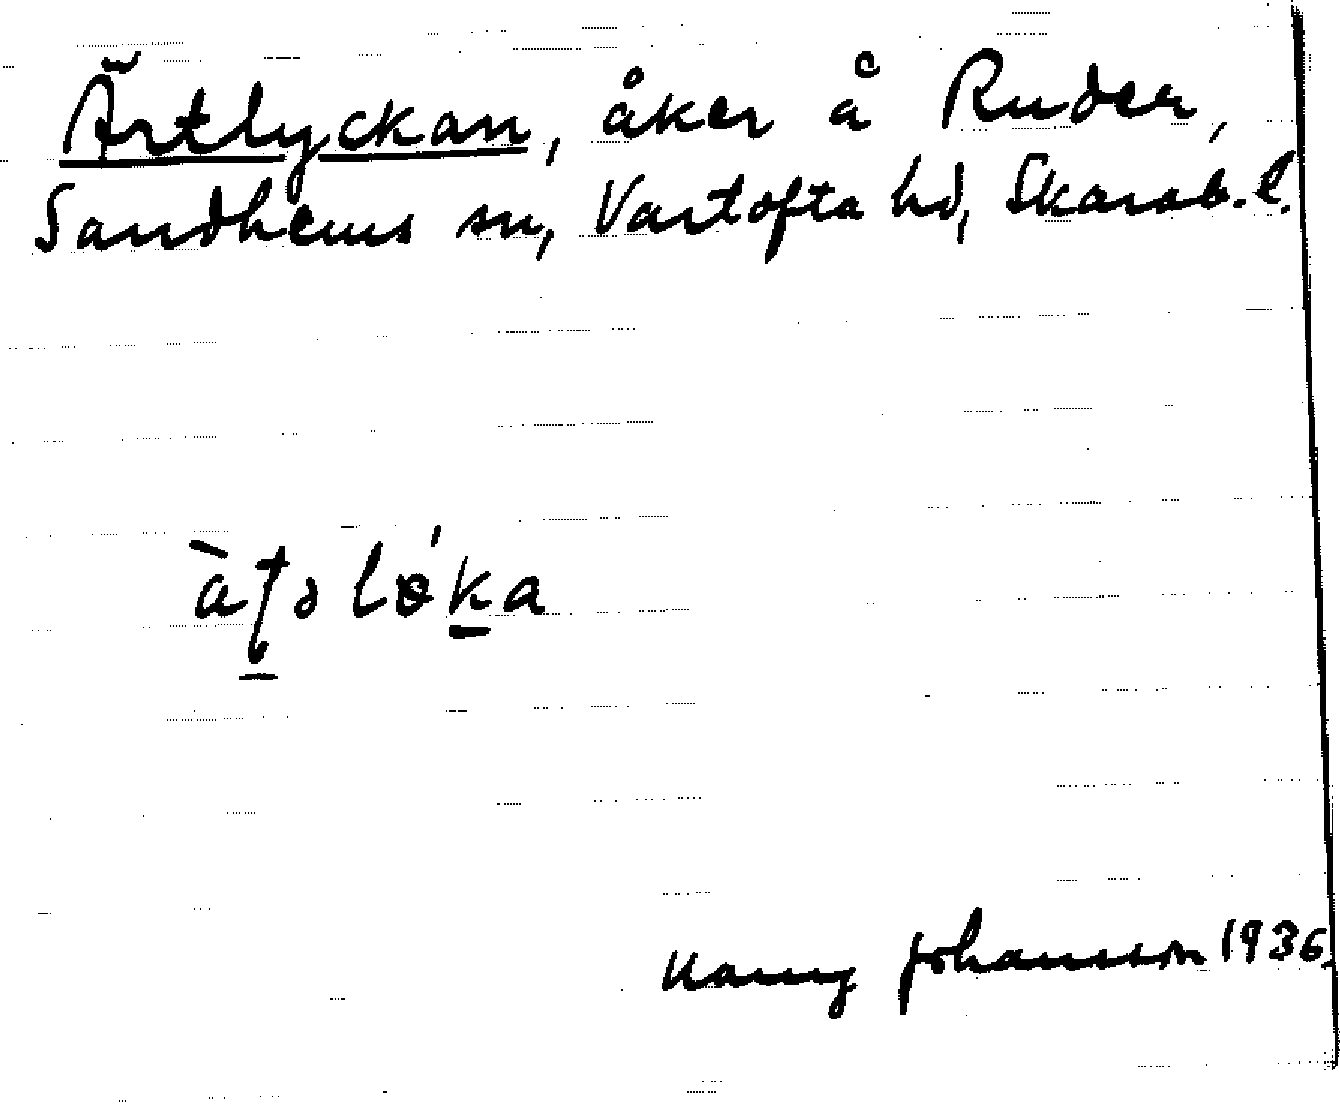 Ärtlyckan, åker å Ruder,
Sandhems sn, Vartofta hd, Skarab. l.
Johansson 1936.